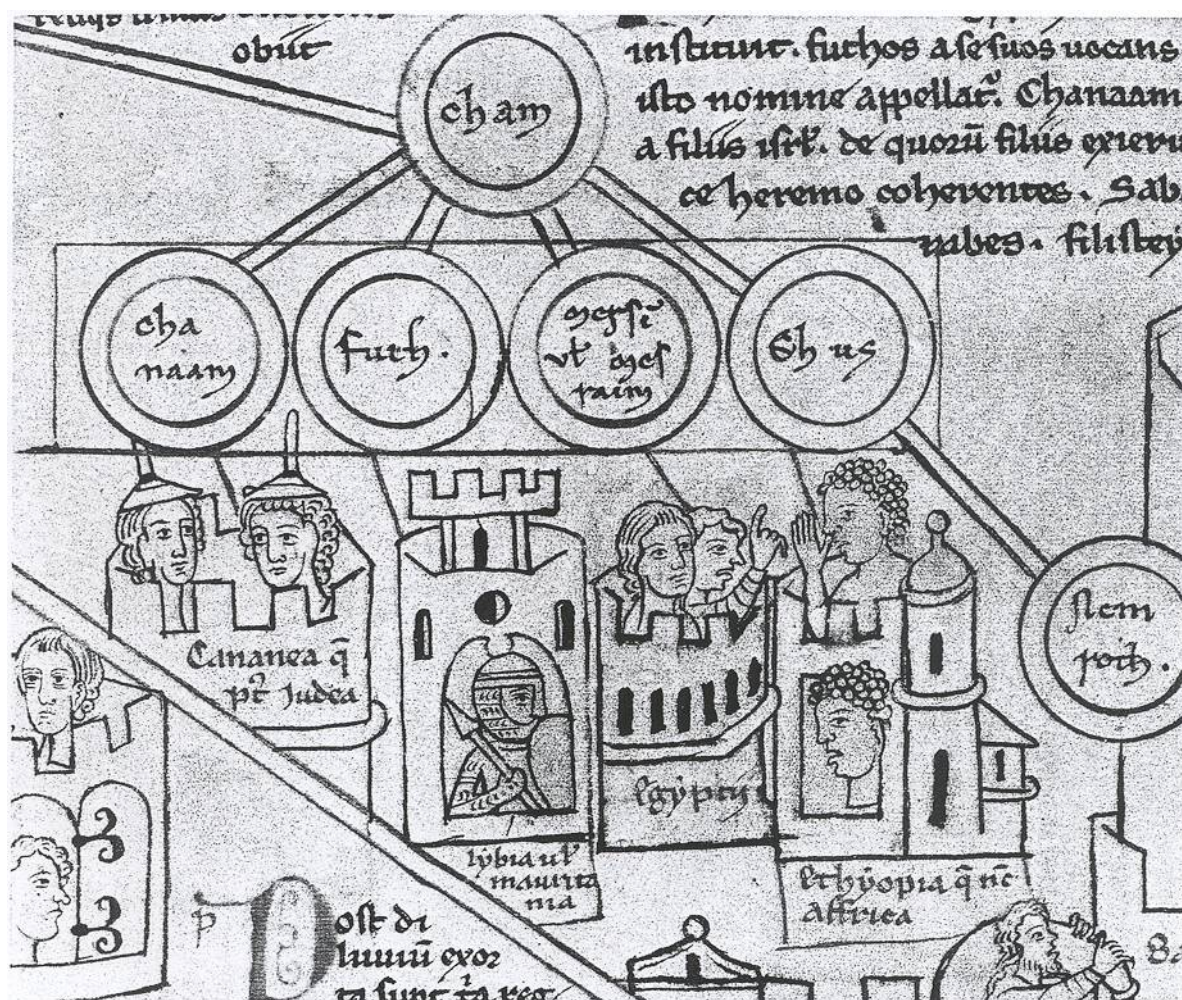 obiit
instituit. futhos a se suos uocans
isto nomine appellat̃. Chanaam
a filiis isrł. de quorũ filiis exieru
ce heremo coherentes. Sab
rabes. filistey
Cham
cha
naam
futh.
mersĩ
vł mes
raim
Chus
Nem
roth.
Cananea q̃
pt̃ Iudea
Egyptus
lybia uł
maurita
nia
Ethyopia q̃ nc̃
Affrica
Post di
luuiũ exor
ta sunt